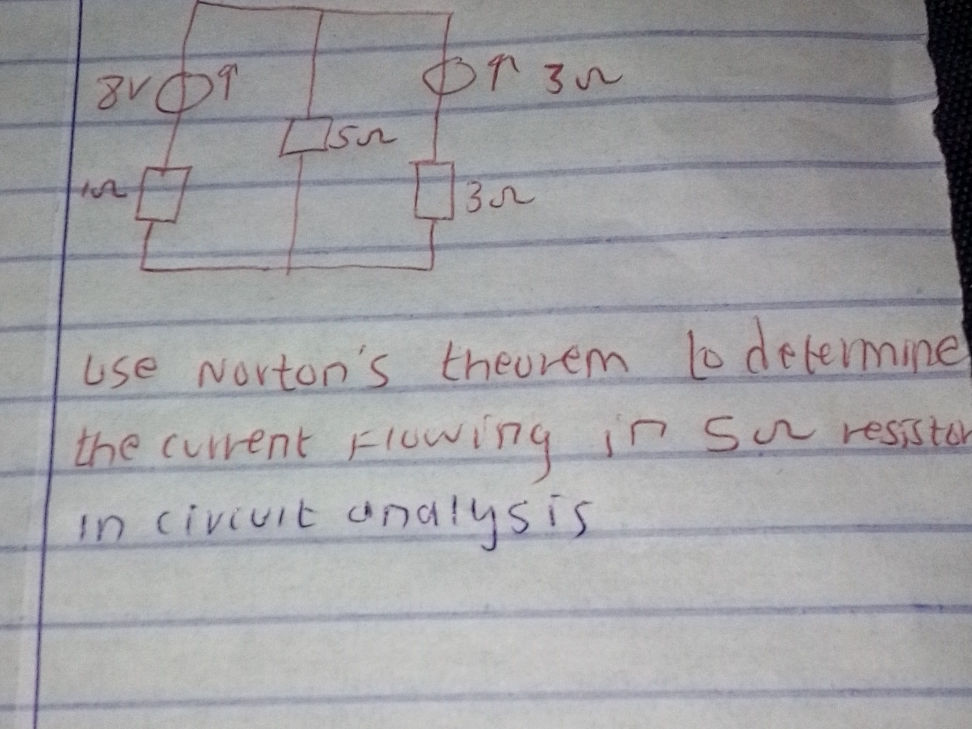 8V ↑
↑ 3Ω
5Ω
1Ω
3Ω
Use Norton's theorem to determine
the current Flowing in 5Ω resistor
In circuit analysis